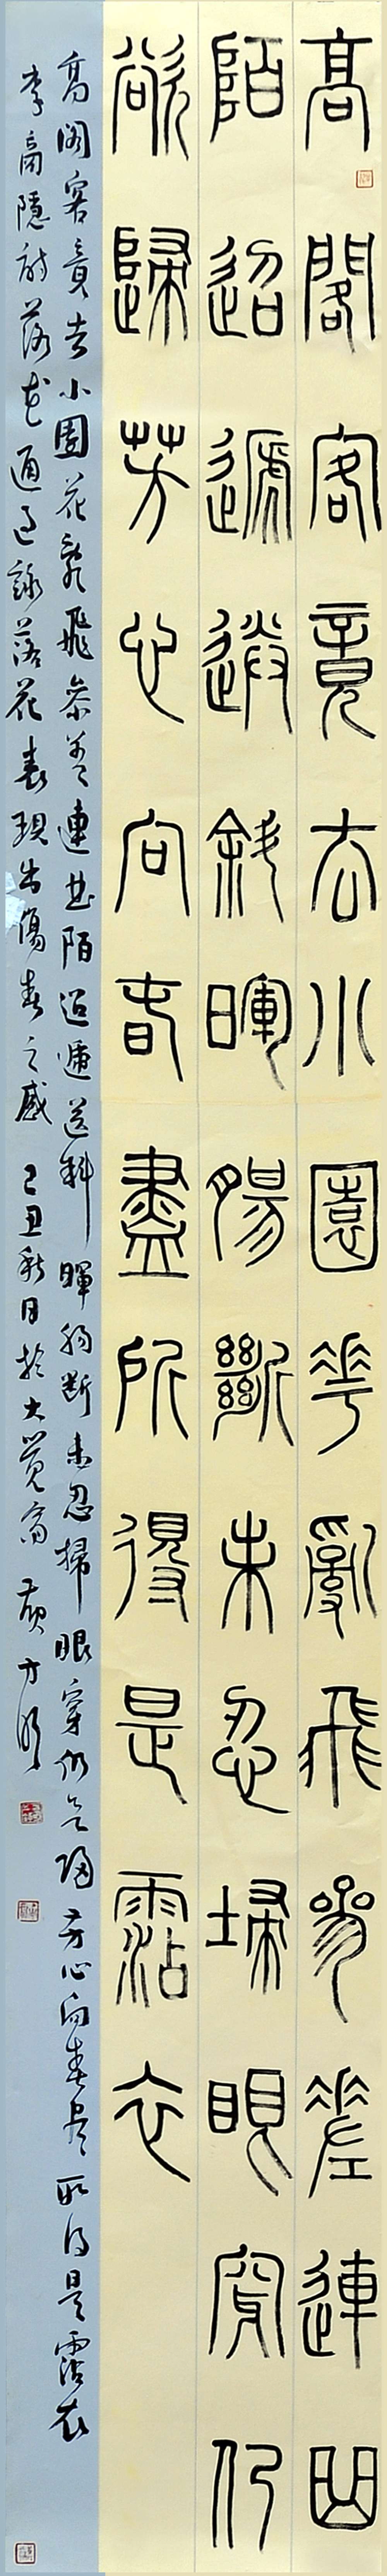 高閣客竟去小園花亂飛參差連曲
陌迢遞送斜暉腸斷未忍埽眼穿仍
欲歸芳心向春盡所得是霑衣
高閣客竟去小園花亂飛參差連曲陌迢遞送斜暉腸斷未忍掃眼穿仍欲歸芳心向春盡所得是霑衣
李商隱詩落花通過詠落花表現出傷春之感 己丑秋日於大覺齋